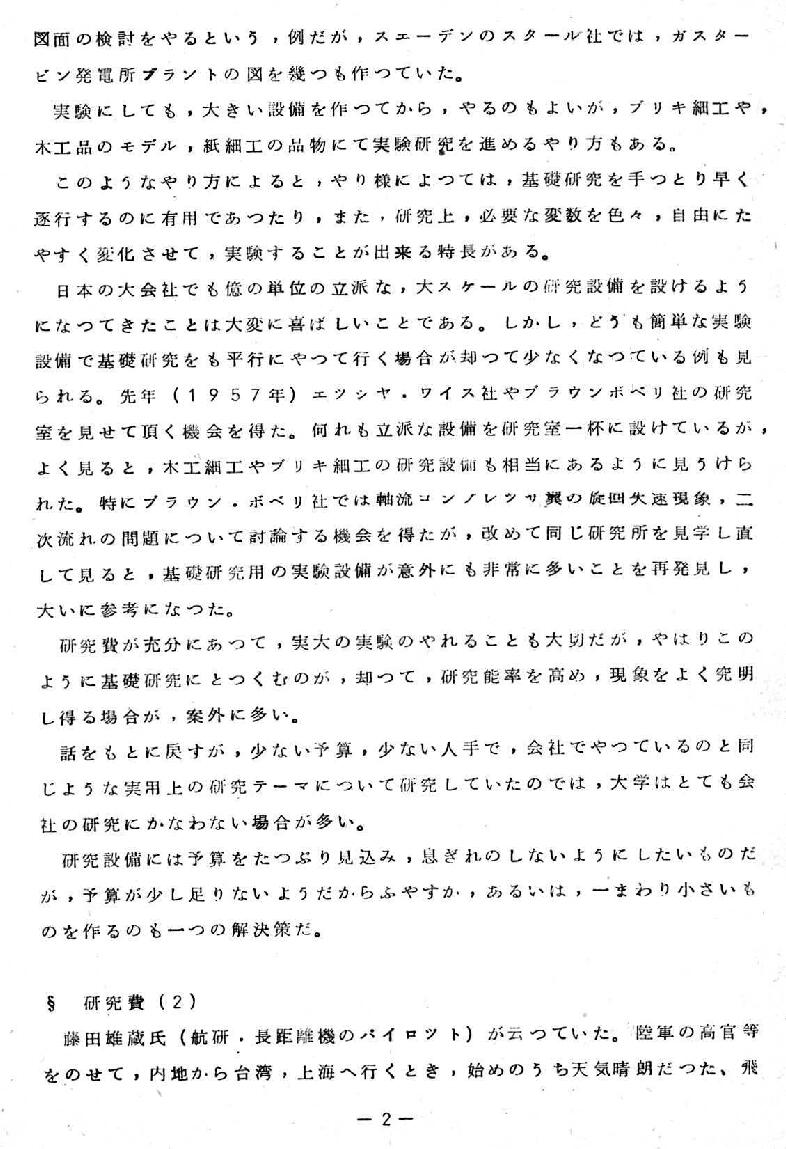 図面の検討をやるという,例だが,スエーデンのスタール社では,ガスター
ビン発電所プラントの図を幾つも作つていた。
実験にしても,大きい設備を作つてから,やるのもよいが,ブリキ細工や,
木工品のモデル,紙細工の品物にて実験研究を進めるやり方もある。
このようなやり方によると,やり様によつては,基礎研究を手つとり早く
逐行するのに有用であつたり,また,研究上,必要な変数を色々,自由にた
やすく変化させて,実験することが出来る特長がある。
日本の大会社でも億の単位の立派な,大スケールの研究設備を設けるよう
になつてきたことは大変に喜ばしいことである。しかし,どうも簡単な実験
設備で基礎研究をも平行にやつて行く場合が却つて少なくなつている例も見
られる。先年(1957年)エツシヤ・ワイス社やブラウンボベリ社の研究
室を見せて頂く機会を得た。何れも立派な設備を研究室一杯に設けているが,
よく見ると,木工細工やブリキ細工の研究設備も相当にあるように見うけら
れた。特にブラウン・ボベリ社では軸流コンプレツサ翼の旋回失速現象,二
次流れの問題について討論する機会を得たが,改めて同じ研究所を見学し直
して見ると,基礎研究用の実験設備が意外にも非常に多いことを再発見し,
大いに参考になつた。
研究費が充分にあつて,実大の実験のやれることも大切だが,やはりこの
ように基礎研究にとつくむのが,却つて,研究能率を高め,現象をよく究明
し得る場合が,案外に多い。
話をもとに戻すが,少ない予算,少ない人手で,会社でやつているのと同
じような実用上の研究テーマについて研究していたのでは,大学はとても会
社の研究にかなわない場合が多い。
研究設備には予算をたつぷり見込み,息ぎれのしないようにしたいものだ
が,予算が少し足りないようだからふやすか,あるいは,一まわり小さいも
のを作るのも一つの解決策だ。
§ 研究費(2)
藤田雄蔵氏(航研・長距離機のパイロツト)が云つていた。陸軍の高官等
をのせて,内地から台湾,上海へ行くとき,始めのうち天気晴朗だつた、飛
— 2 —